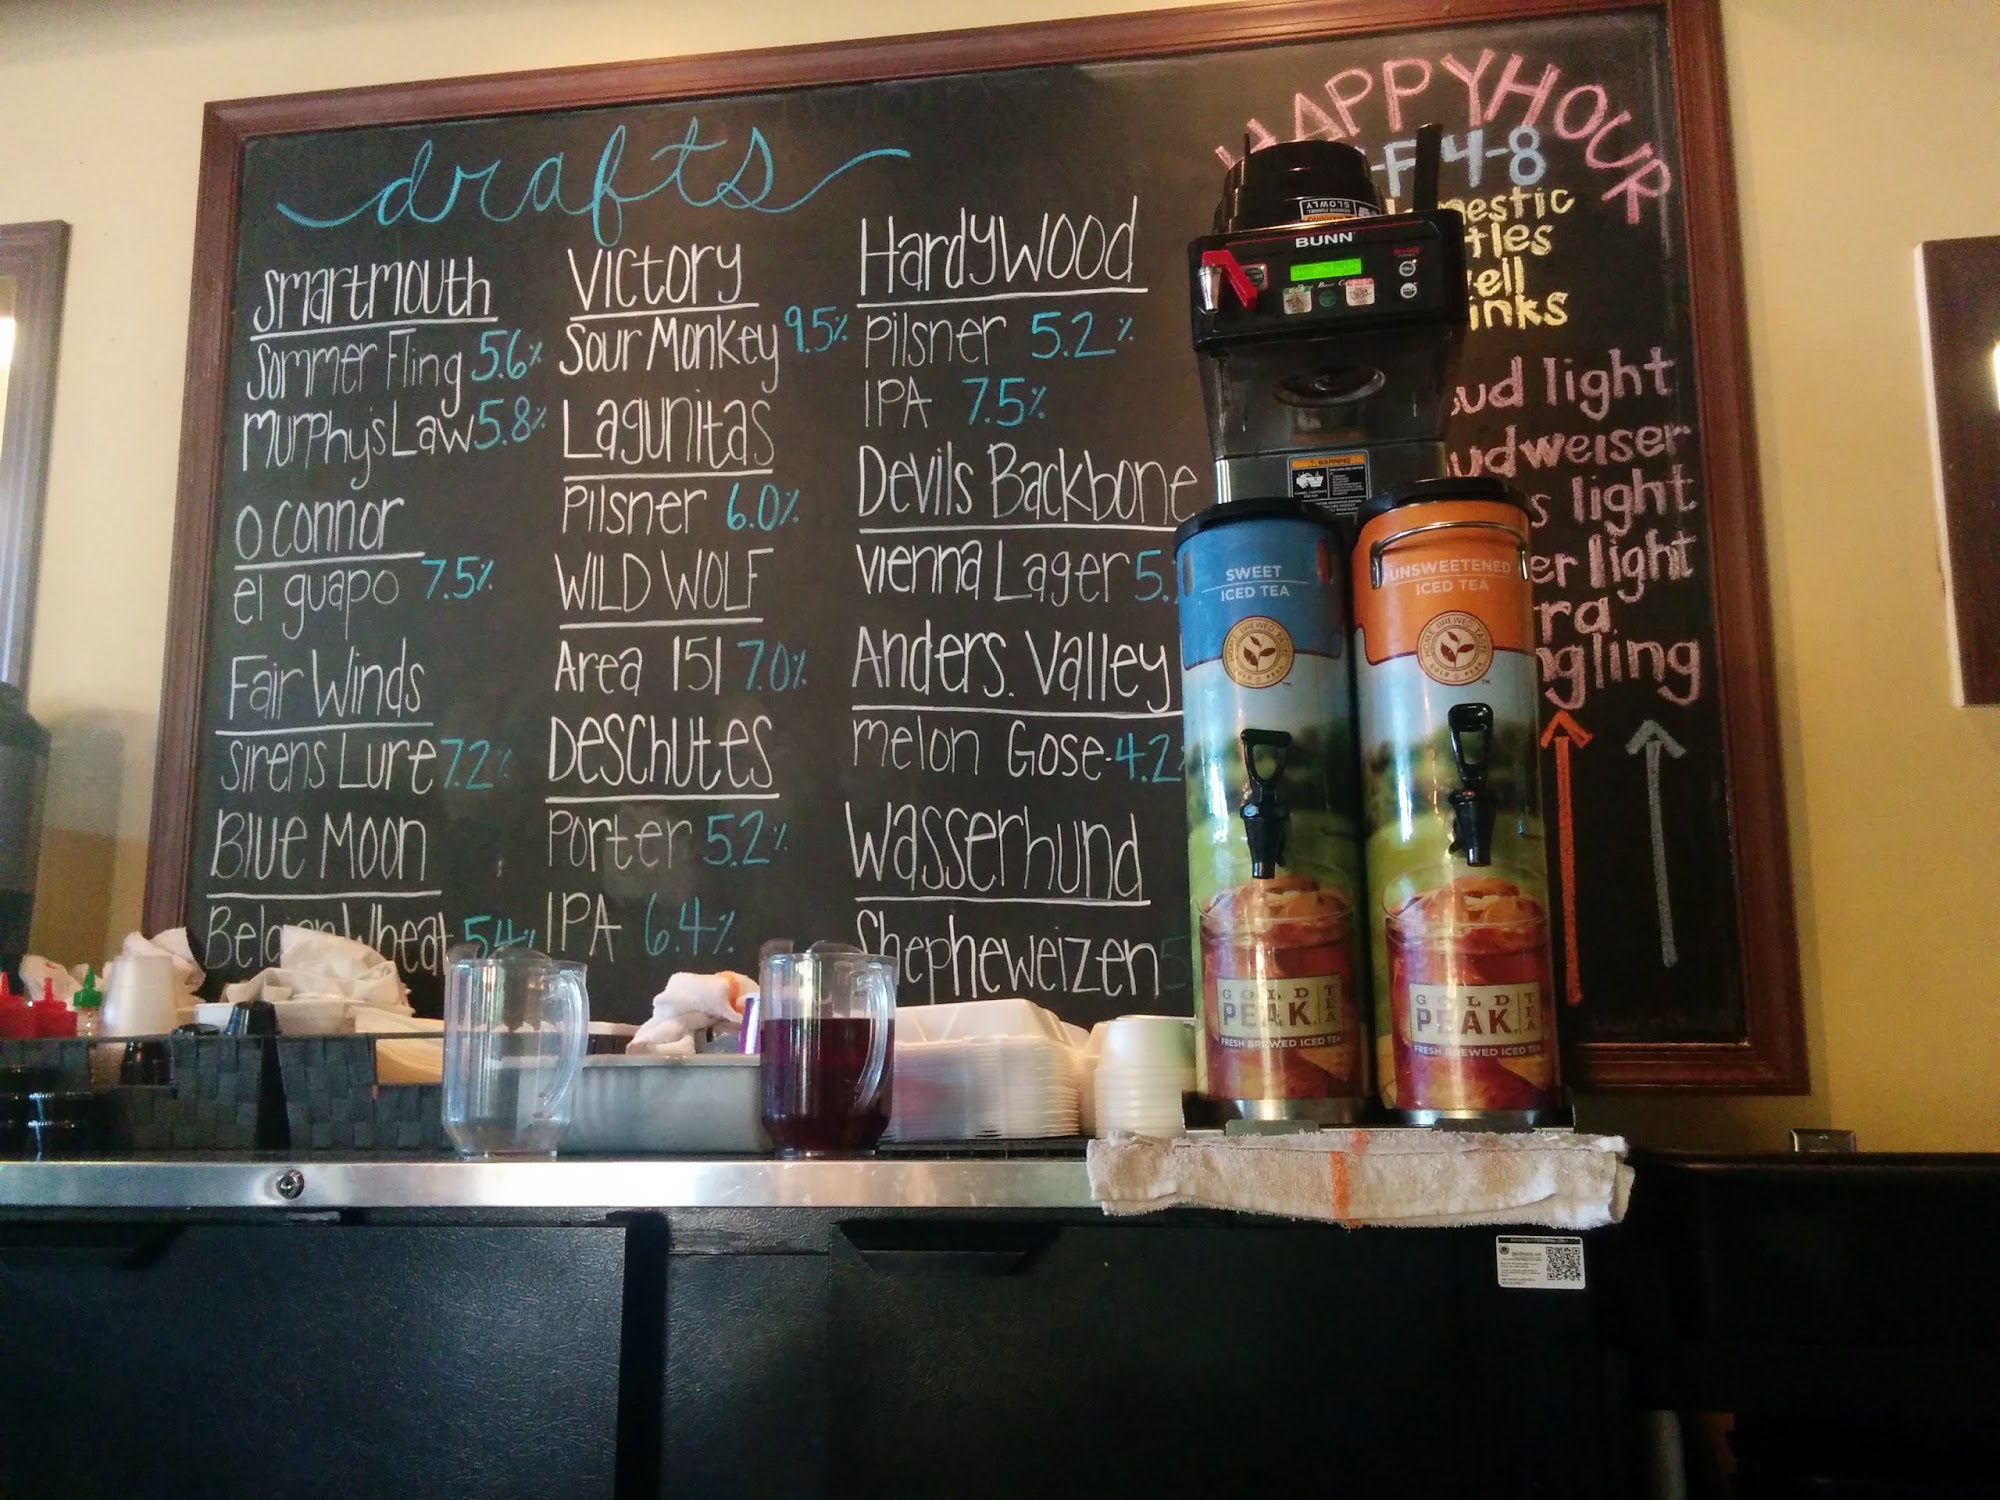 drafts
Smartmouth
Sommer Fling 5.6%
Murphy's Law 5.8%
O Connor
el guapo 7.5%
Fair Winds
Sirens Lure 7.2%
Blue Moon
Belgian Wheat 5.4%
Victory
Sour Monkey 9.5%
Lagunitas
Pilsner 6.0%
Wild Wolf
Area 151 7.0%
Deschutes
Porter 5.2%
IPA 6.4%
Hardywood
Pilsner 5.2%
IPA 7.5%
Devils Backbone
Vienna Lager 5.
Anders. Valley
Melon Gose-4.2%
Wasserhund
Shepheweizen 5
HAPPY HOUR
-F 4-8
estic
tles
ell
inks
ud light
udweiser
s light
er light
ra
ngling
SLOWLY
BUNN
WARNING
SWEET
ICED TEA
HOME BREWED TASTE
GOLD PEAK
GOLD
PEAK
TEA
FRESH BREWED ICED TEA
UNSWEETENED
ICED TEA
HOME BREWED TASTE
GOLD PEAK
GOLD
PEAK
TEA
FRESH BREWED ICED TEA